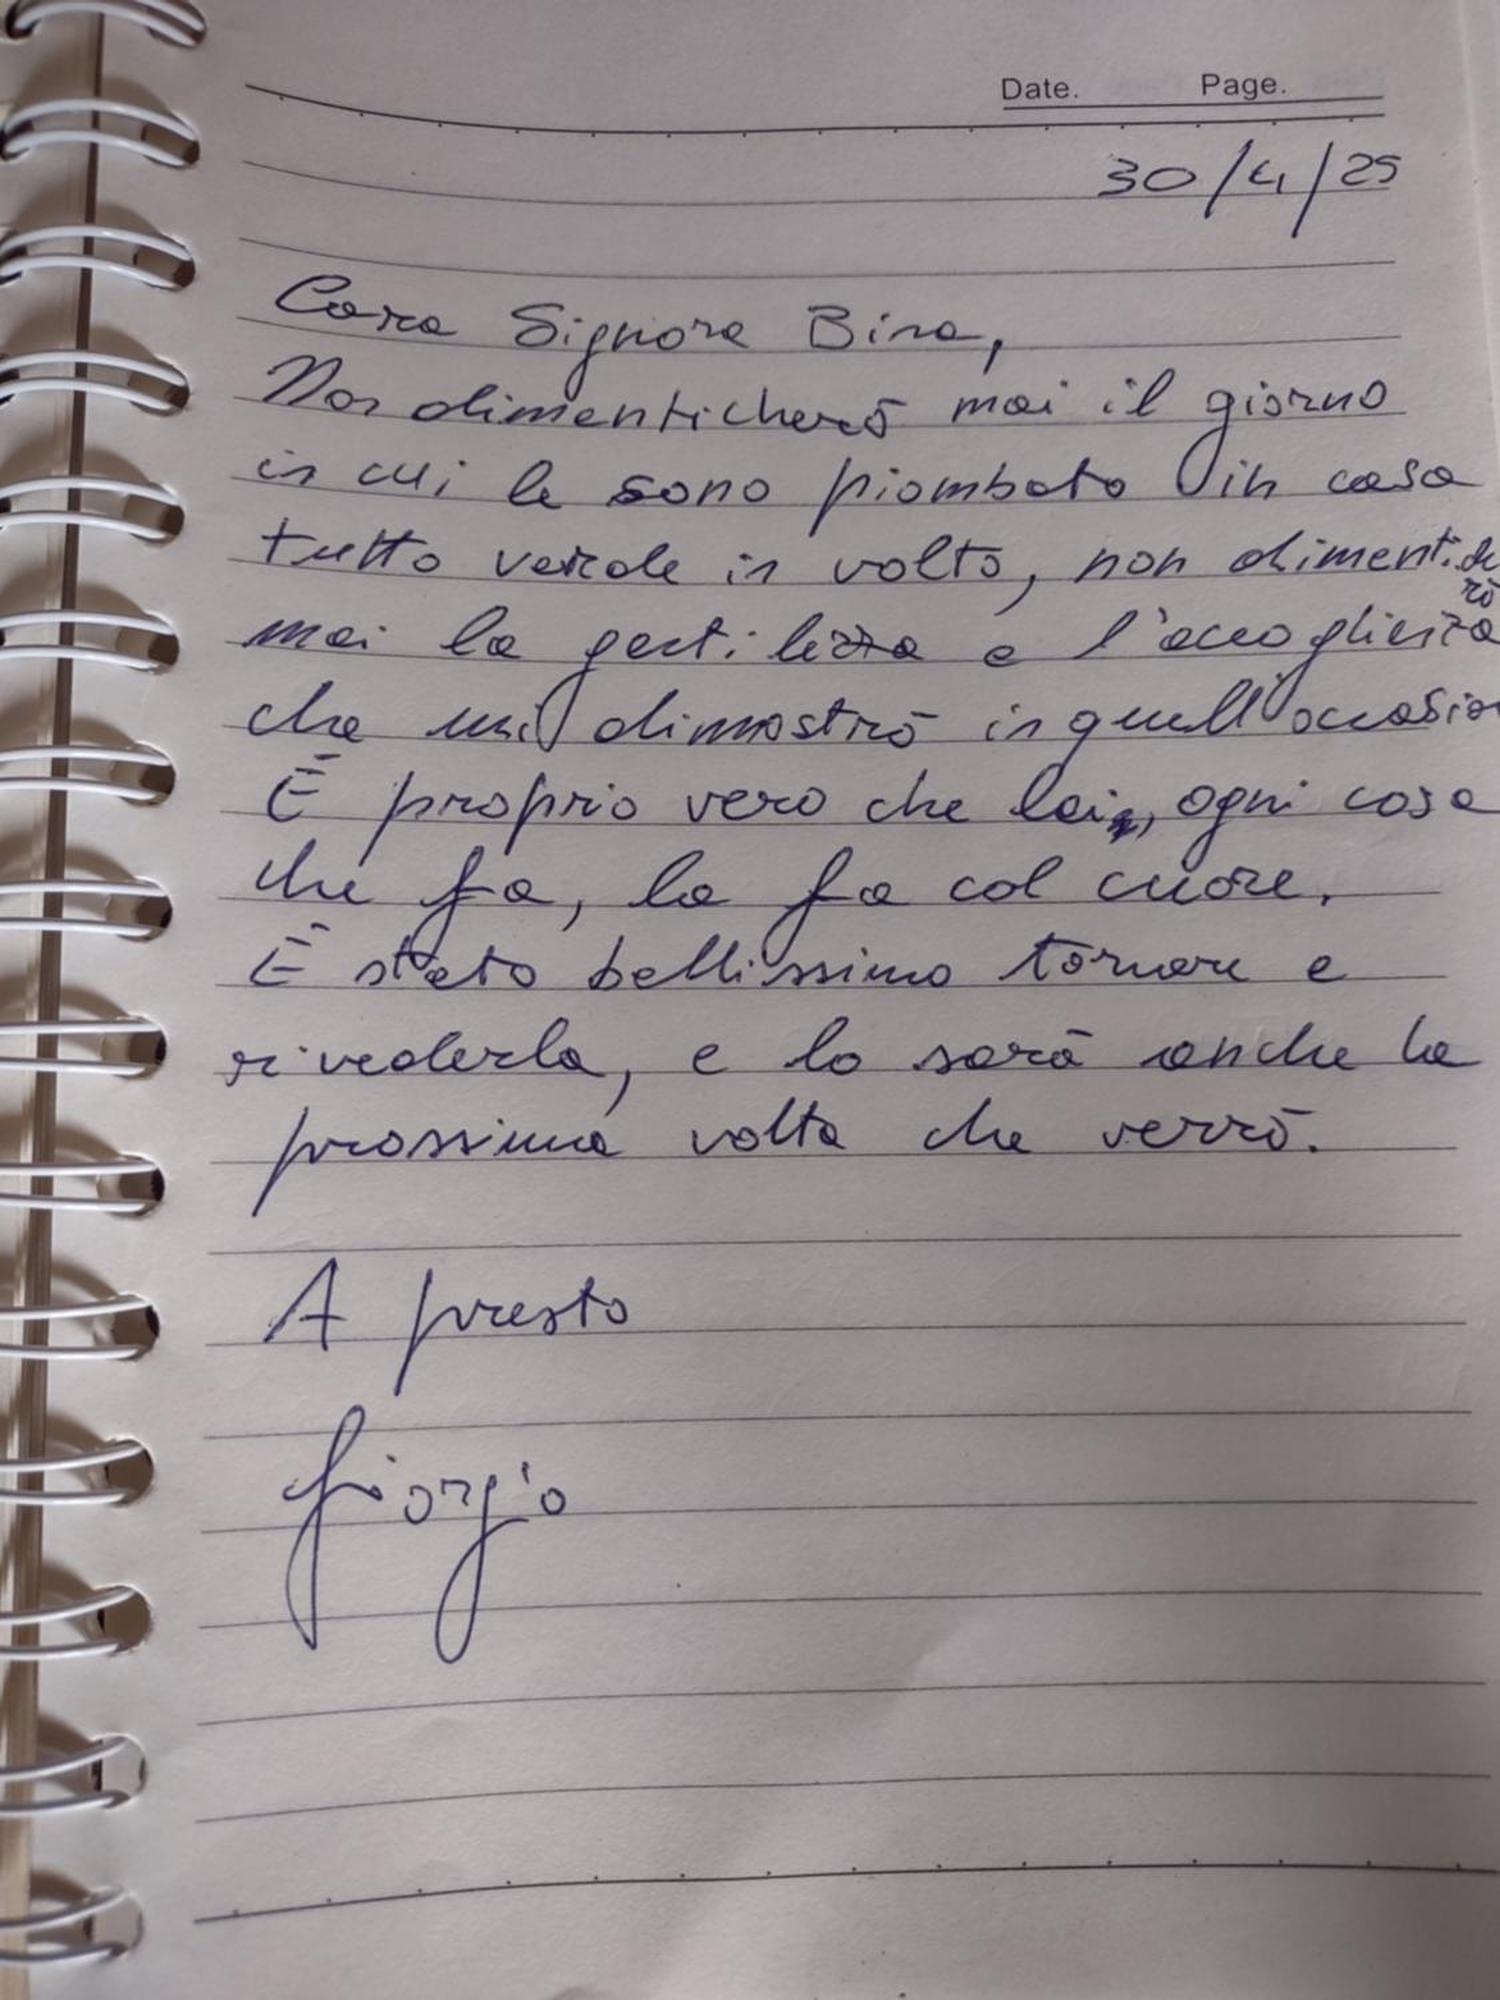 Date. Page.
30/4/25
Cara Signora Bina,
Non dimenticherò mai il giorno
in cui le sono piombato in casa
tutto verde in volto, non dimentiche
rò
mai la gentilezza e l'accoglienza
che mi dimostrò in quell'occasion
È proprio vero che lei, ogni cosa
che fa, la fa col cuore.
È stato bellissimo tornare e
rivederla, e lo sarà anche la
prossima volta che verrò.
A presto
Giorgio